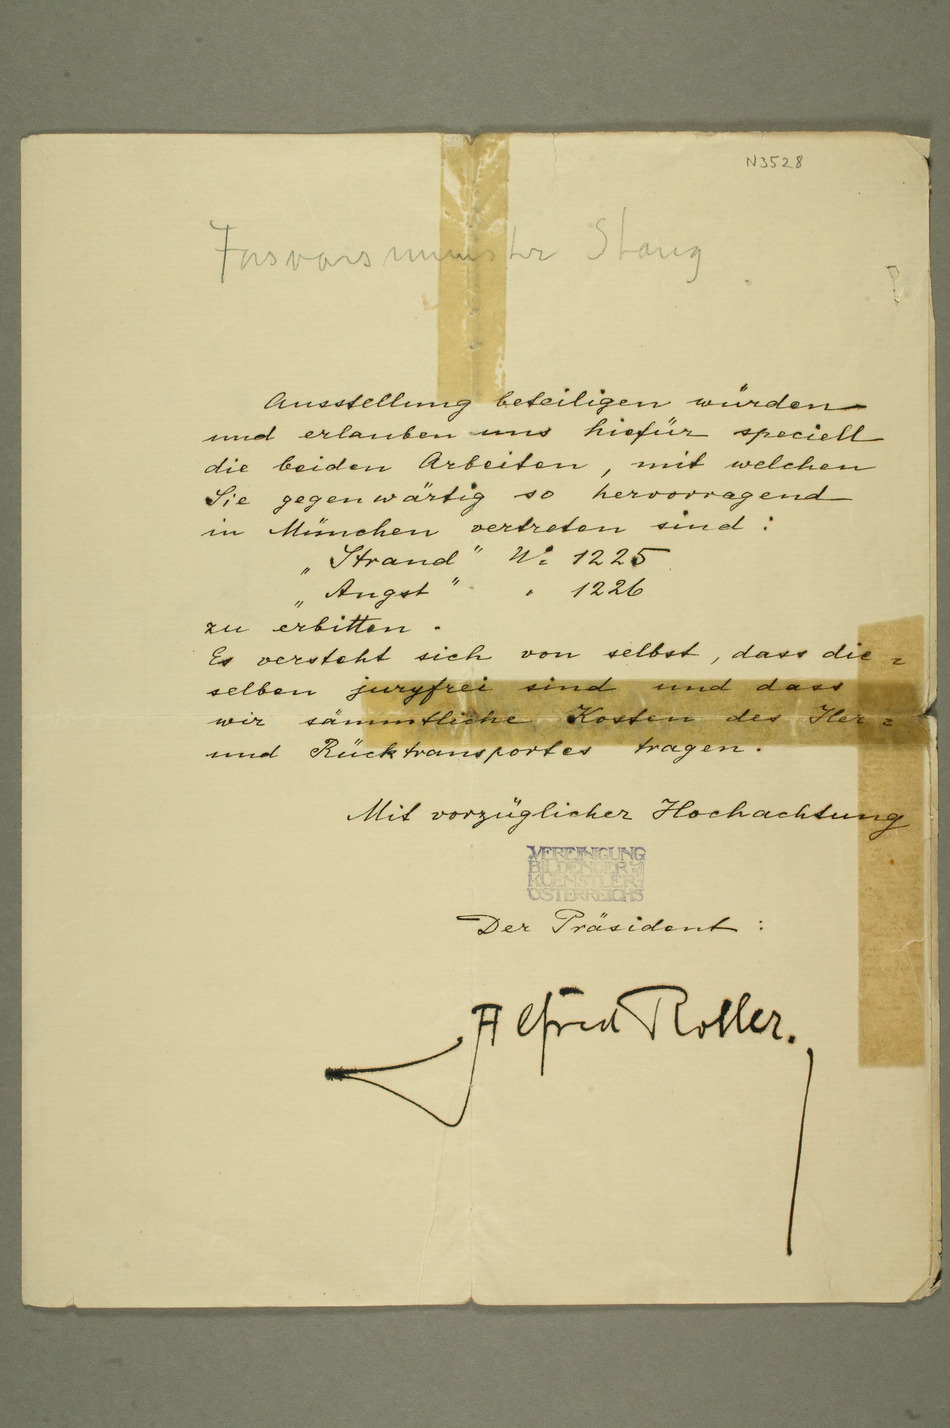 N3528
Forsvarsminister Stang
Ausstellung beteiligen würden
und erlauben uns hiefür speciell
die beiden Arbeiten, mit welchen
Sie gegenwärtig so hervorragend
in München vertreten sind:
„Strand" N: 1225
„Angst" " 1226
zu erbitten.
Es versteht sich von selbst, dass die=
selben juryfrei sind und dass
wir sämmtliche Kosten des Her=
und Rücktransportes tragen.
Mit vorzüglicher Hochachtung
VEREINIGUNG
BILDENDER
KUENSTLER
ÖSTERREICHS
Der Präsident:
Alfred Roller.